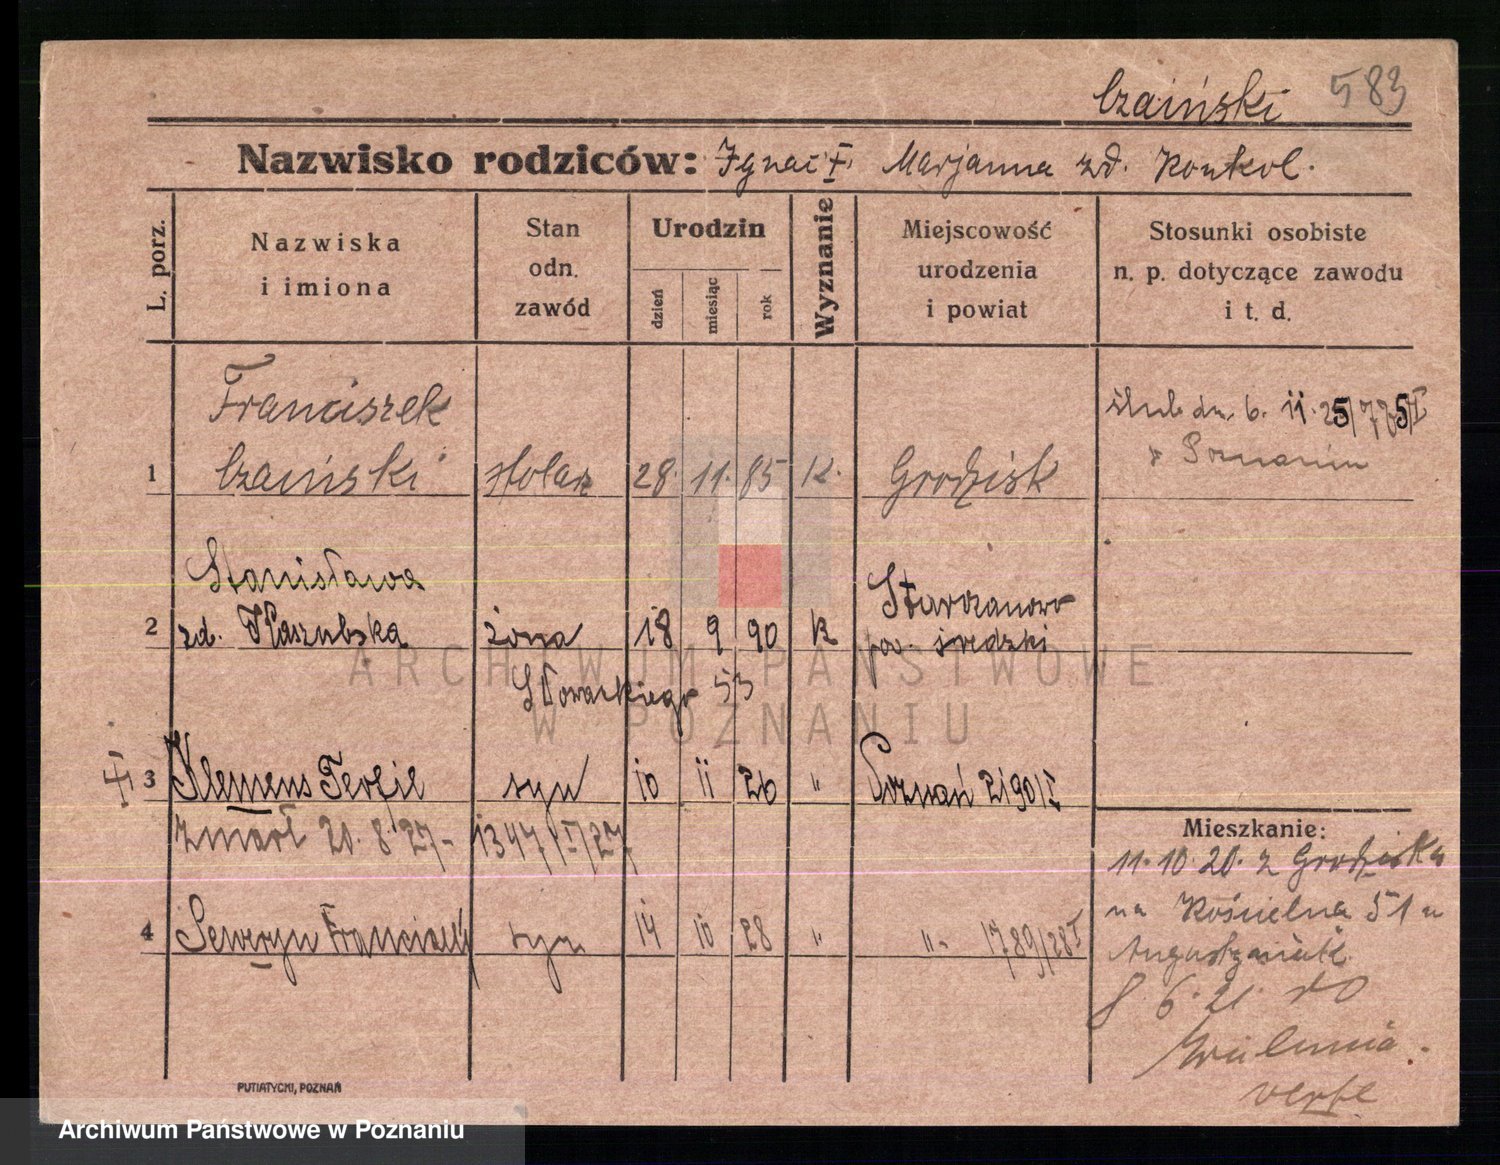 Czaiński 583
Nazwisko rodziców: Ignac † Marjanna zd. Kontkol.
L. porz.
Nazwiska
i imiona
Stan
odn.
zawód
Urodzin
dzień
miesiąc
rok
Wyznanie
Miejscowość
urodzenia
i powiat
Stosunki osobiste
n. p. dotyczące zawodu
i t. d.
Franciszek
1 Czaiński stolarz 28. 11. 85 K. Grodzisk
ślub dn. 6. 11. 25/
w Poznaniu
Stanisława
2 zd. Kaszubska żona 18 9 90 K
pow. średzki
Słowackiego 53
3 Klemens Teofil syn 10 11 26 " Poznań 2190/I
zmarł 20. 8. 27- 1347/I/27
4 Seweryn Franciszek syn 14 10 28 " "- 1789/28 I
Mieszkanie:
11. 10. 20. z Grodziska
na Kościelna 51 u
Augustyniak
8. 6. 21. do
verte
PUTIATYCKI, POZNAŃ
ARCHIWUM PAŃSTWOWE
W POZNANIU
Archiwum Państwowe w Poznaniu